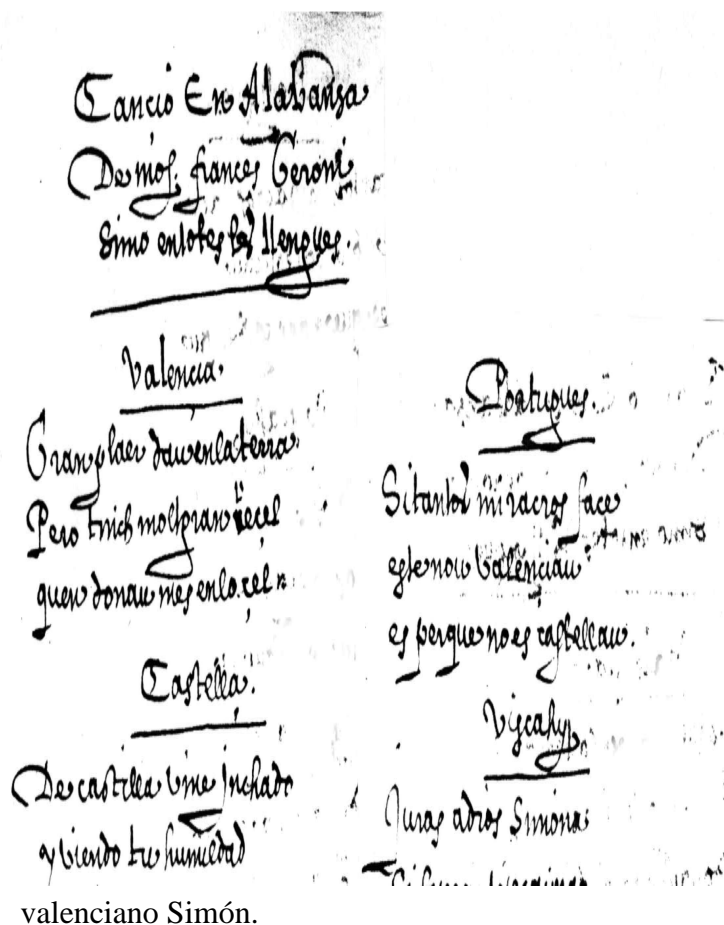 Canció En Alabansa
De mos. frances Geroni
Simo en totes les llengues.
Valencia.
Gran plaer dau en la terra
Pero tinch molt gran recel
quen donau mes en lo cel
Castella.
De castilla vine inchado
y viendo tu humildad
Portugues.
Si tantos miracros face
este nou Valenciau
es perque no es castellau.
Viscahy
Juras adios Simona
valenciano Simón.